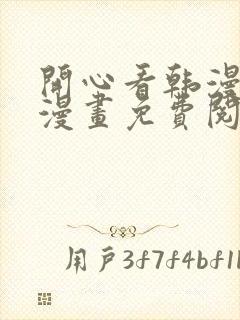 開心看韩漫
漫畫免費閱
用戶3f7f4bf1l